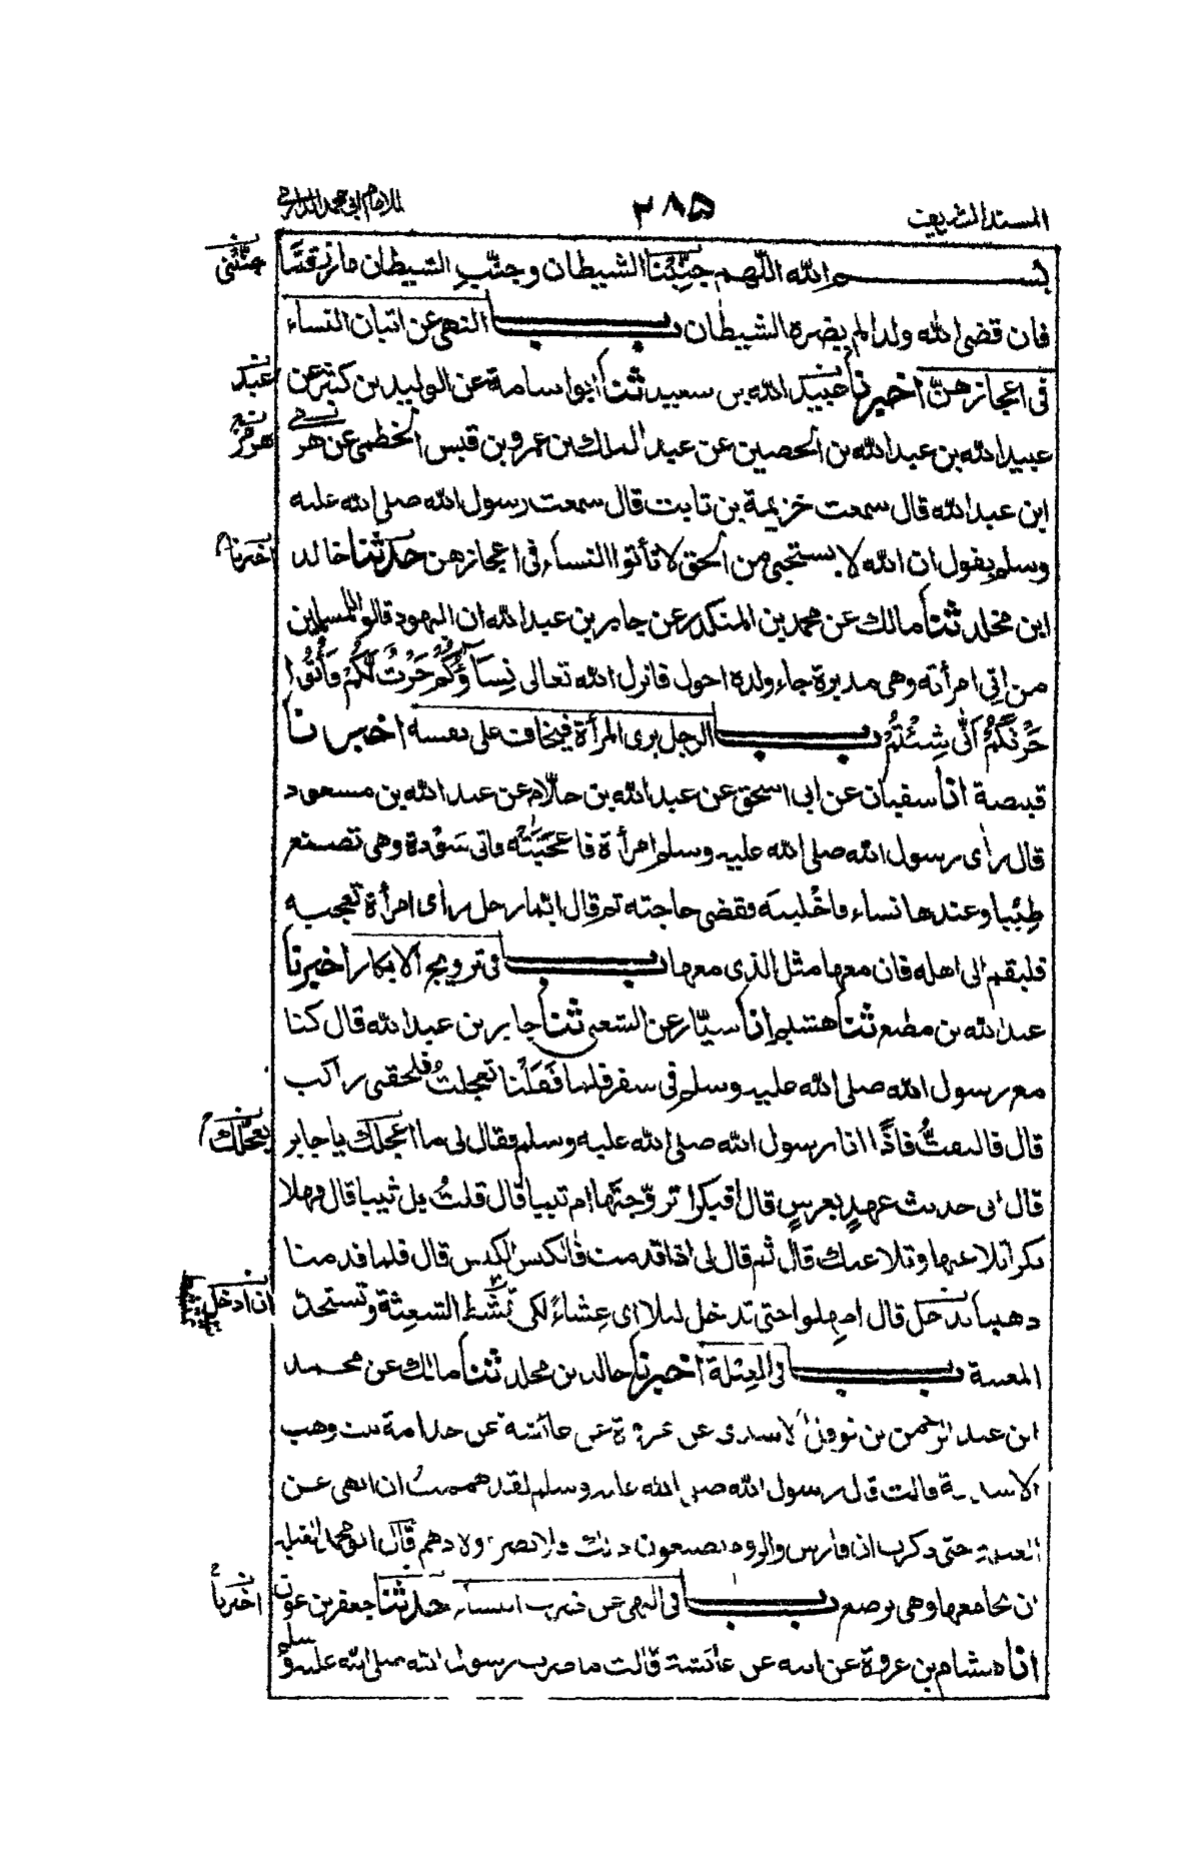 المسند الشريف ٢٨٥ للامام ابی محمد الدارمی
بسم الله اللّهم جنّبنا الشيطان وجنّب الشيطان ما رزقتنا
جنّبنی
فان قضی الله ولدا لم يضره الشيطان باب النهی عن اتيان النساء
فی اعجازهنّ اخبرنا عبيد الله بن سعيد ثنا ابو اسامة عن الوليد بن كثير عن
عبد
عبيد الله بن عبد الله بن الحصين عن عبد الملك بن عمرو بن قيس الخطمی عن هرمی
ابن عبد الله قال سمعت خزيمة بن ثابت قال سمعت رسول الله صلی الله عليه
وسلم يقول ان الله لا يستحيی من الحق لا تأتوا النساء فی اعجازهن حدثنا خالد
اخبرنا
ابن مخلد ثنا مالك عن محمد بن المنكدر عن جابر بن عبد الله ان اليهود قالوا للمسلمين
من اتی امرأته وهی مدبرة جاء ولده احول فانزل الله تعالی نِسَآؤُكُمْ حَرْثٌ لَّكُمْ فَأْتُوْا
حَرْثَكُمْ اَنّٰی شِئْتُمْ باب الرجل يری المرأة فيخاف علی نفسه اخبرنا
قبيصة انا سفيان عن ابی اسحق عن عبد الله بن حلّام عن عبد الله بن مسعود
قال رأی رسول الله صلی الله عليه وسلم امرأة فاعجَبَتْه فاتی سَوْدة وهی تصنع
طِيْبا وعندها نساء فاخْلينَه فقضی حاجته ثم قال ايما رجل رأی امرأة تعجبه
فليقم الی اهله فان معها مثل الذی معها باب فی تزويج الابكار اخبرنا
عبد الله بن مطيع ثنا هشيم انا سيّار عن الشعبی ثنا جابر بن عبد الله قال كنا
مع رسول الله صلی الله عليه وسلم فی سفر فلما قفَلْنا تعجلتُ فلحقنی راكب
قال فالتفتُّ فاذًا انا برسول الله صلی الله عليه وسلم فقال لی ما اعجلك يا جابر
يعجّلك
قال انی حديث عهدٍ بعرسٍ قال افبكرا تزوّجتَها ام ثيبا قال قلتُ بل ثيبا قال فهلا
بكرا تلاعبها وتلاعبك قال ثم قال لی اذا قدمت فالكيس الكيس قال فلما قدمنا
ذهبنا ندخل قال امهلوا حتی تدخل ليلا ای عِشاءً لكی تمتشط الشعِثة وتستحدّ
ان ادخل
المغيبة باب فی الغيلة اخبرنا خالد بن مخلد ثنا مالك عن محمد
ابن عبد الرحمن بن نوفل الاسدی عن عروة عن عائشة عن جدامة بنت وهب
الاسدية قالت قال رسول الله صلی الله عليه وسلم لقد هممتُ ان انهی عن
الغيلة حتی ذكرت ان فارس والروم يصنعون ذلك ولا يضر اولادهم قال ابو محمد الغيلة
ان يجامعها وهی ترضع باب فی النهی عن ضرب النساء حدثنا جعفر بن عون
اخبرنا
انا هشام بن عروة عن ابيه عن عائشة قالت ما ضرب رسول الله صلی الله عليه وسلم